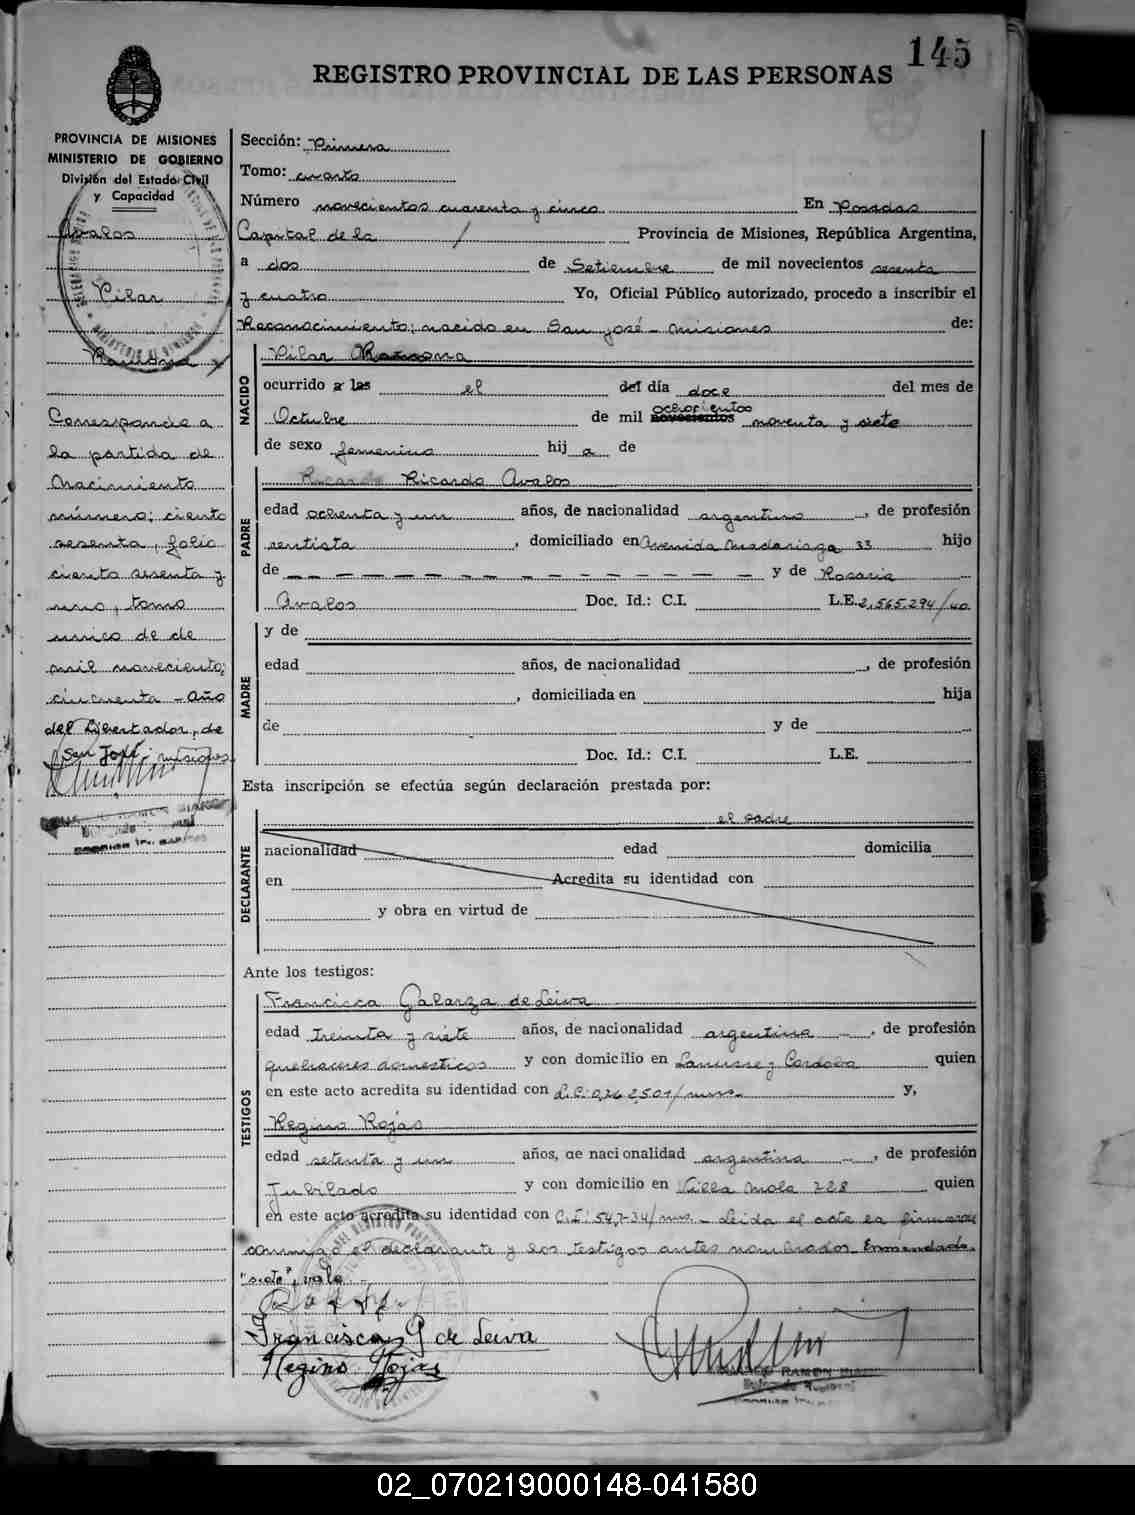 145
REGISTRO PROVINCIAL DE LAS PERSONAS
PROVINCIA DE MISIONES
MINISTERIO DE GOBIERNO
División del Estado Civil
y Capacidad
Avalos
Pilar
Ramona
Corresponde a
la partida de
Nacimiento
número; ciento
sesenta, folio
ciento sesenta y
uno, tomo
unico de de
mil novecientos
cincuenta - Año
del Libertador, de
San José - misiones
Sección: Primera
Tomo: cuarto
Número novecientos cuarenta y cinco En Posadas
Capital de la / Provincia de Misiones, República Argentina,
a dos de Setiembre de mil novecientos sesenta
y cuatro Yo, Oficial Público autorizado, procedo a inscribir el
Reconocimiento; nacido en San José - misiones de:
NACIDO
Pilar Ramona
ocurrido a las el del día doce del mes de
Octubre de mil novecientos ochocientos noventa y siete
de sexo femenino hij a de
PADRE
Ricardo Avalos
edad ochenta y un años, de nacionalidad argentino, de profesión
rentista, domiciliado en Avenida Madariaga 33 hijo
de — — — — — — — — — — — — — — y de Rosaria
Avalos Doc. Id.: C.I. L.E. 2.565.294/40
MADRE
y de
edad años, de nacionalidad , de profesión
, domiciliada en hija
de y de
Doc. Id.: C.I. L.E.
Esta inscripción se efectúa según declaración prestada por:
DECLARANTE
el padre
nacionalidad edad domicilia
en Acredita su identidad con
y obra en virtud de
Ante los testigos:
TESTIGOS
Francisca Galarza de Leiva
edad treinta y siete años, de nacionalidad argentina, de profesión
quehaceres domesticos y con domicilio en Lanusse y Cordoba quien
en este acto acredita su identidad con y,
Regino Rojas
edad setenta y un años, de nacionalidad argentina, de profesión
Jubilado y con domicilio en Villa Mola 228 quien
en este acto acredita su identidad con C.I: 547-34/mns. - Leida el acta la firma de
conmigo el declarante y los testigos antes nombrados. Enmendado.
"siete", vale.-
Francisca G de Leiva
Regino Rojas
RAMON
02_070219000148-041580